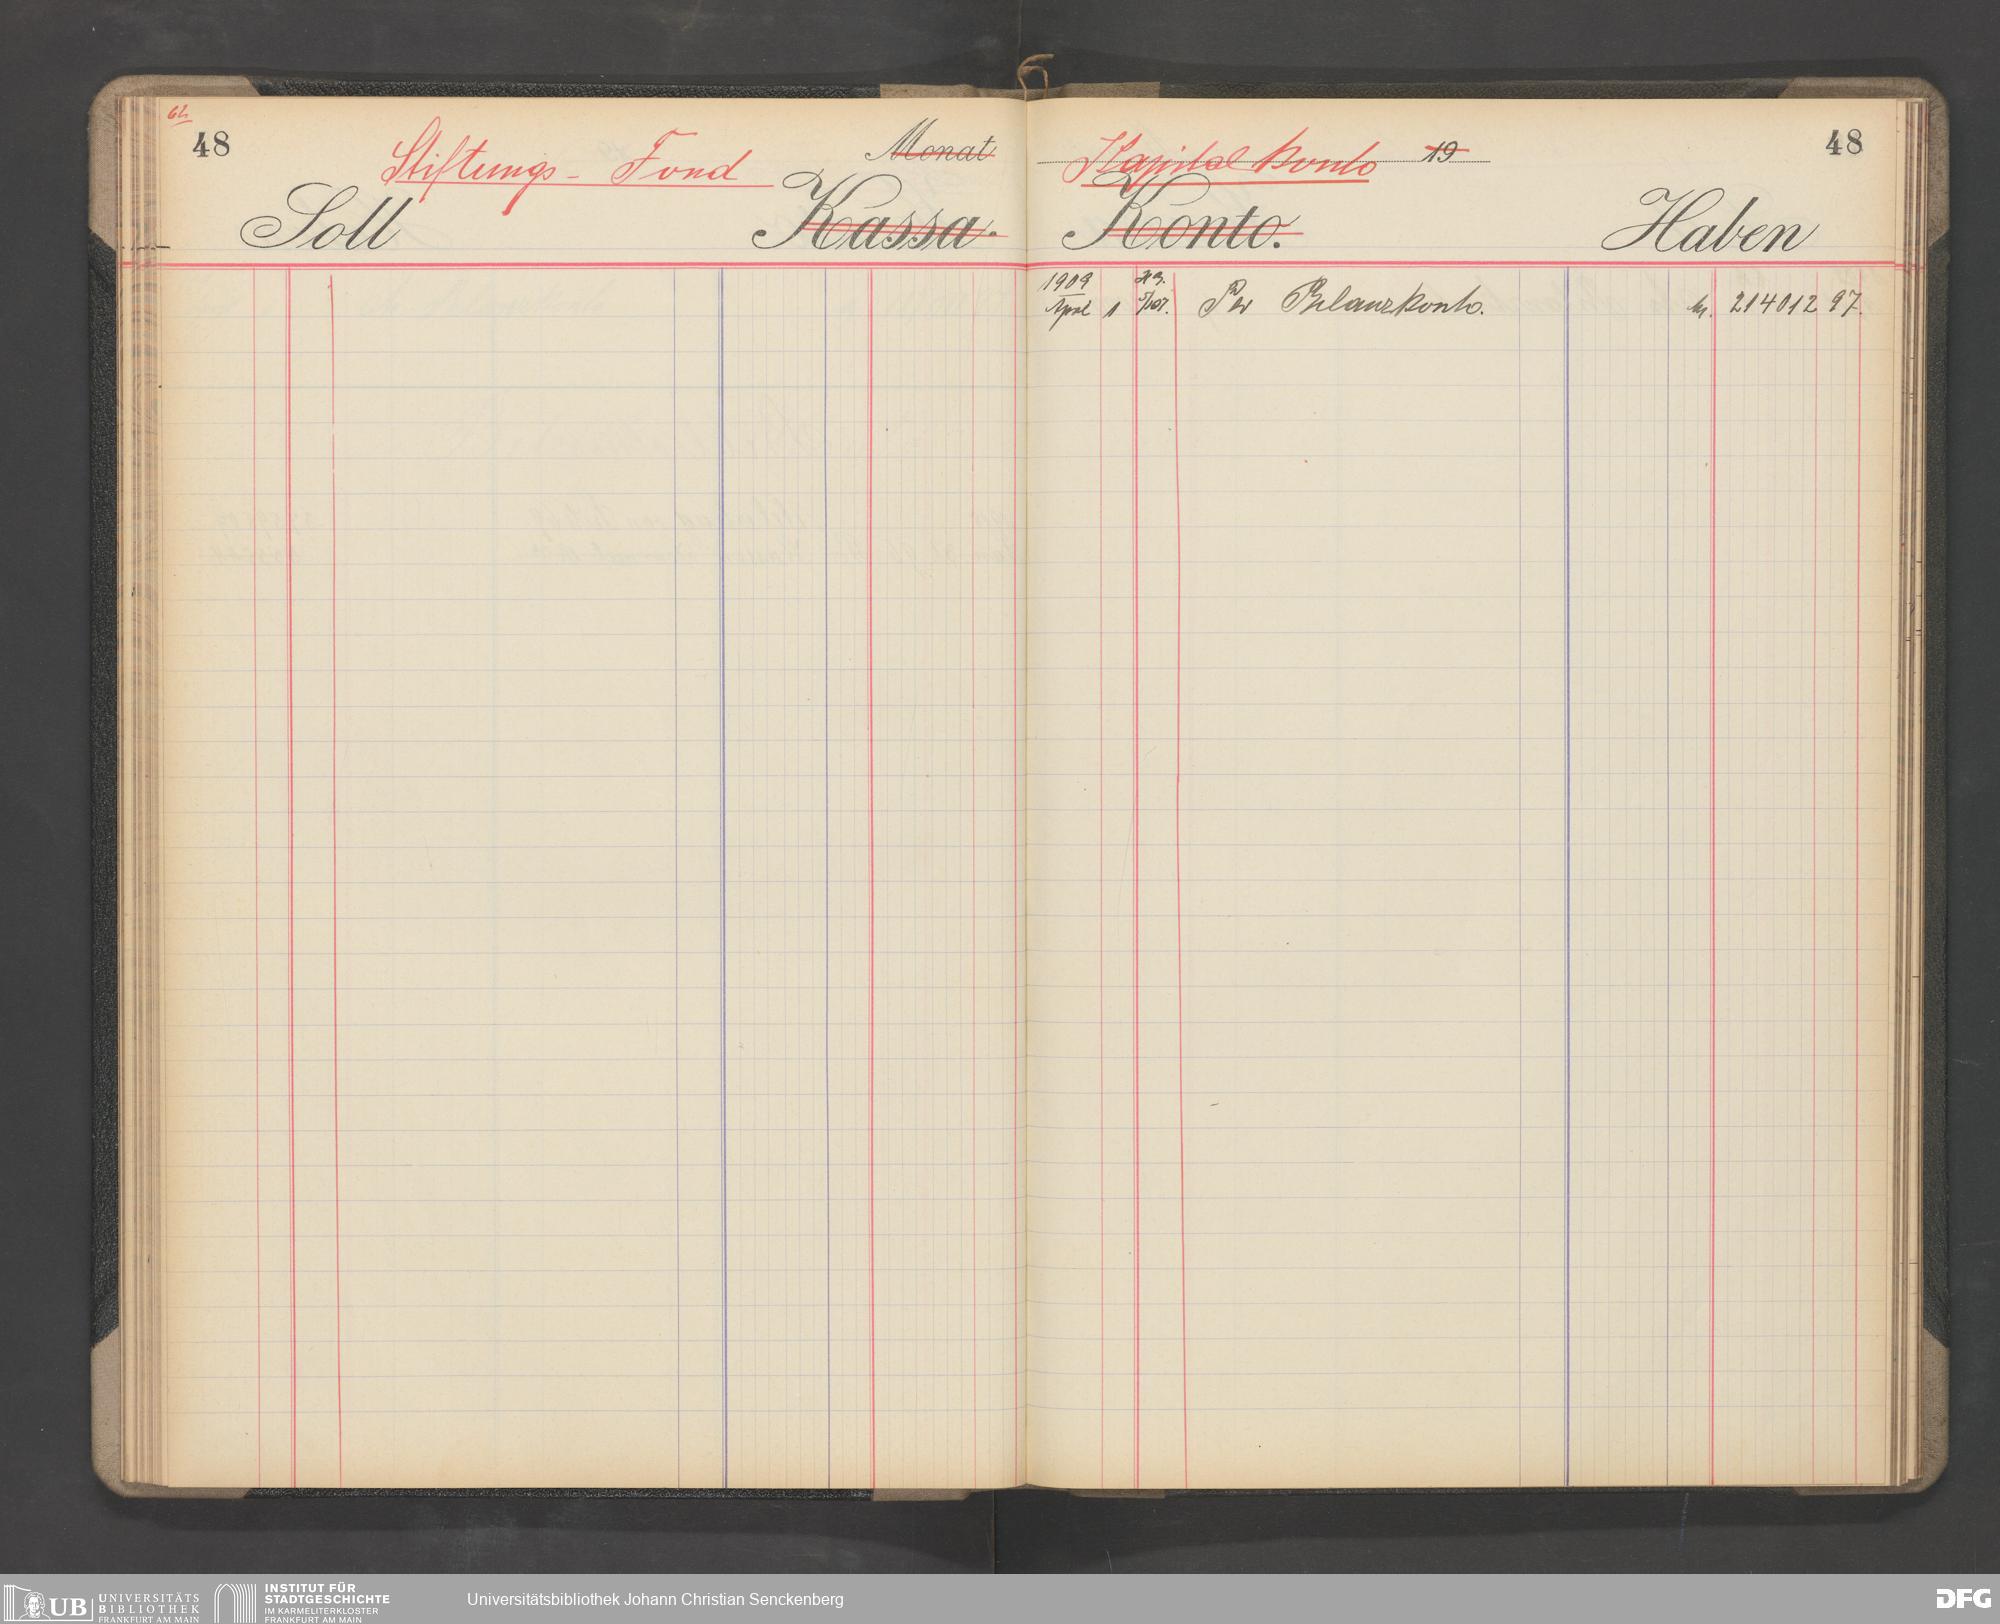 62
48
Stiftungs - Fond
Monat
Kapital konto
19
48
Soll
Kassa.
Konto.
Haben
1909
April 1
Per Bilanzkonto.
M. 214012 97.
UB
UNIVERSITÄTS
BIBLIOTHEK
FRANKFURT AM MAIN
INSTITUT FÜR
STADTGESCHICHTE
IM KARMELITERKLOSTER
FRANKFURT AM MAIN
Universitätsbibliothek Johann Christian Senckenberg
DFG